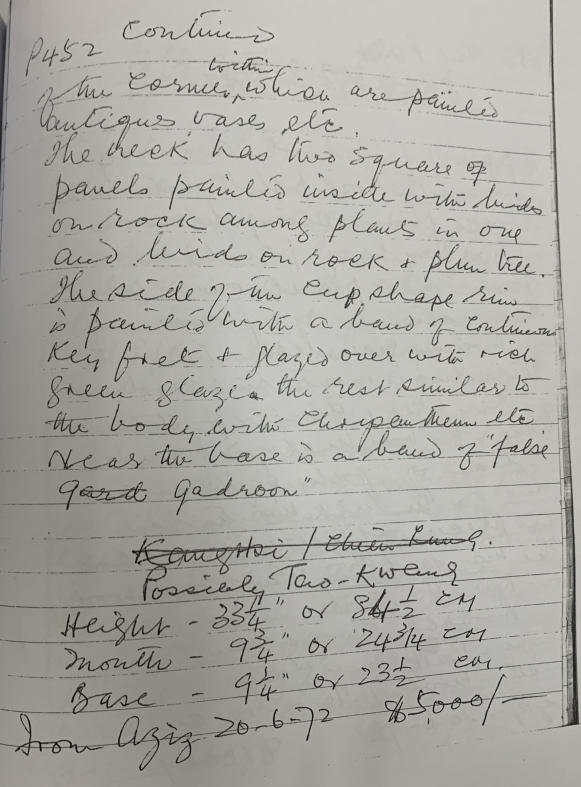 P452 Continued
of the corner, within which are painted
antiques vases etc.
The neck has two square of
panels painted inside with birds
on rock among plants in one
and birds on rock & plum tree.
The side of the cup shape rim
is painted with a band of continuous
key fret & glazed over with rich
green glaze. the rest similar to
the body with etc
Near the base is a band of "false
gard Gadroon"
KangHsi / Chien Lung.
Possibly Tao-Kwang
Height - 33 1/4" or 84 1/2 CM
Mouth - 9 3/4" or 24 3/4 CM
Base - 9 1/4" or 23 1/2 cm.
From Aziz 20-6-72 $5,000/-